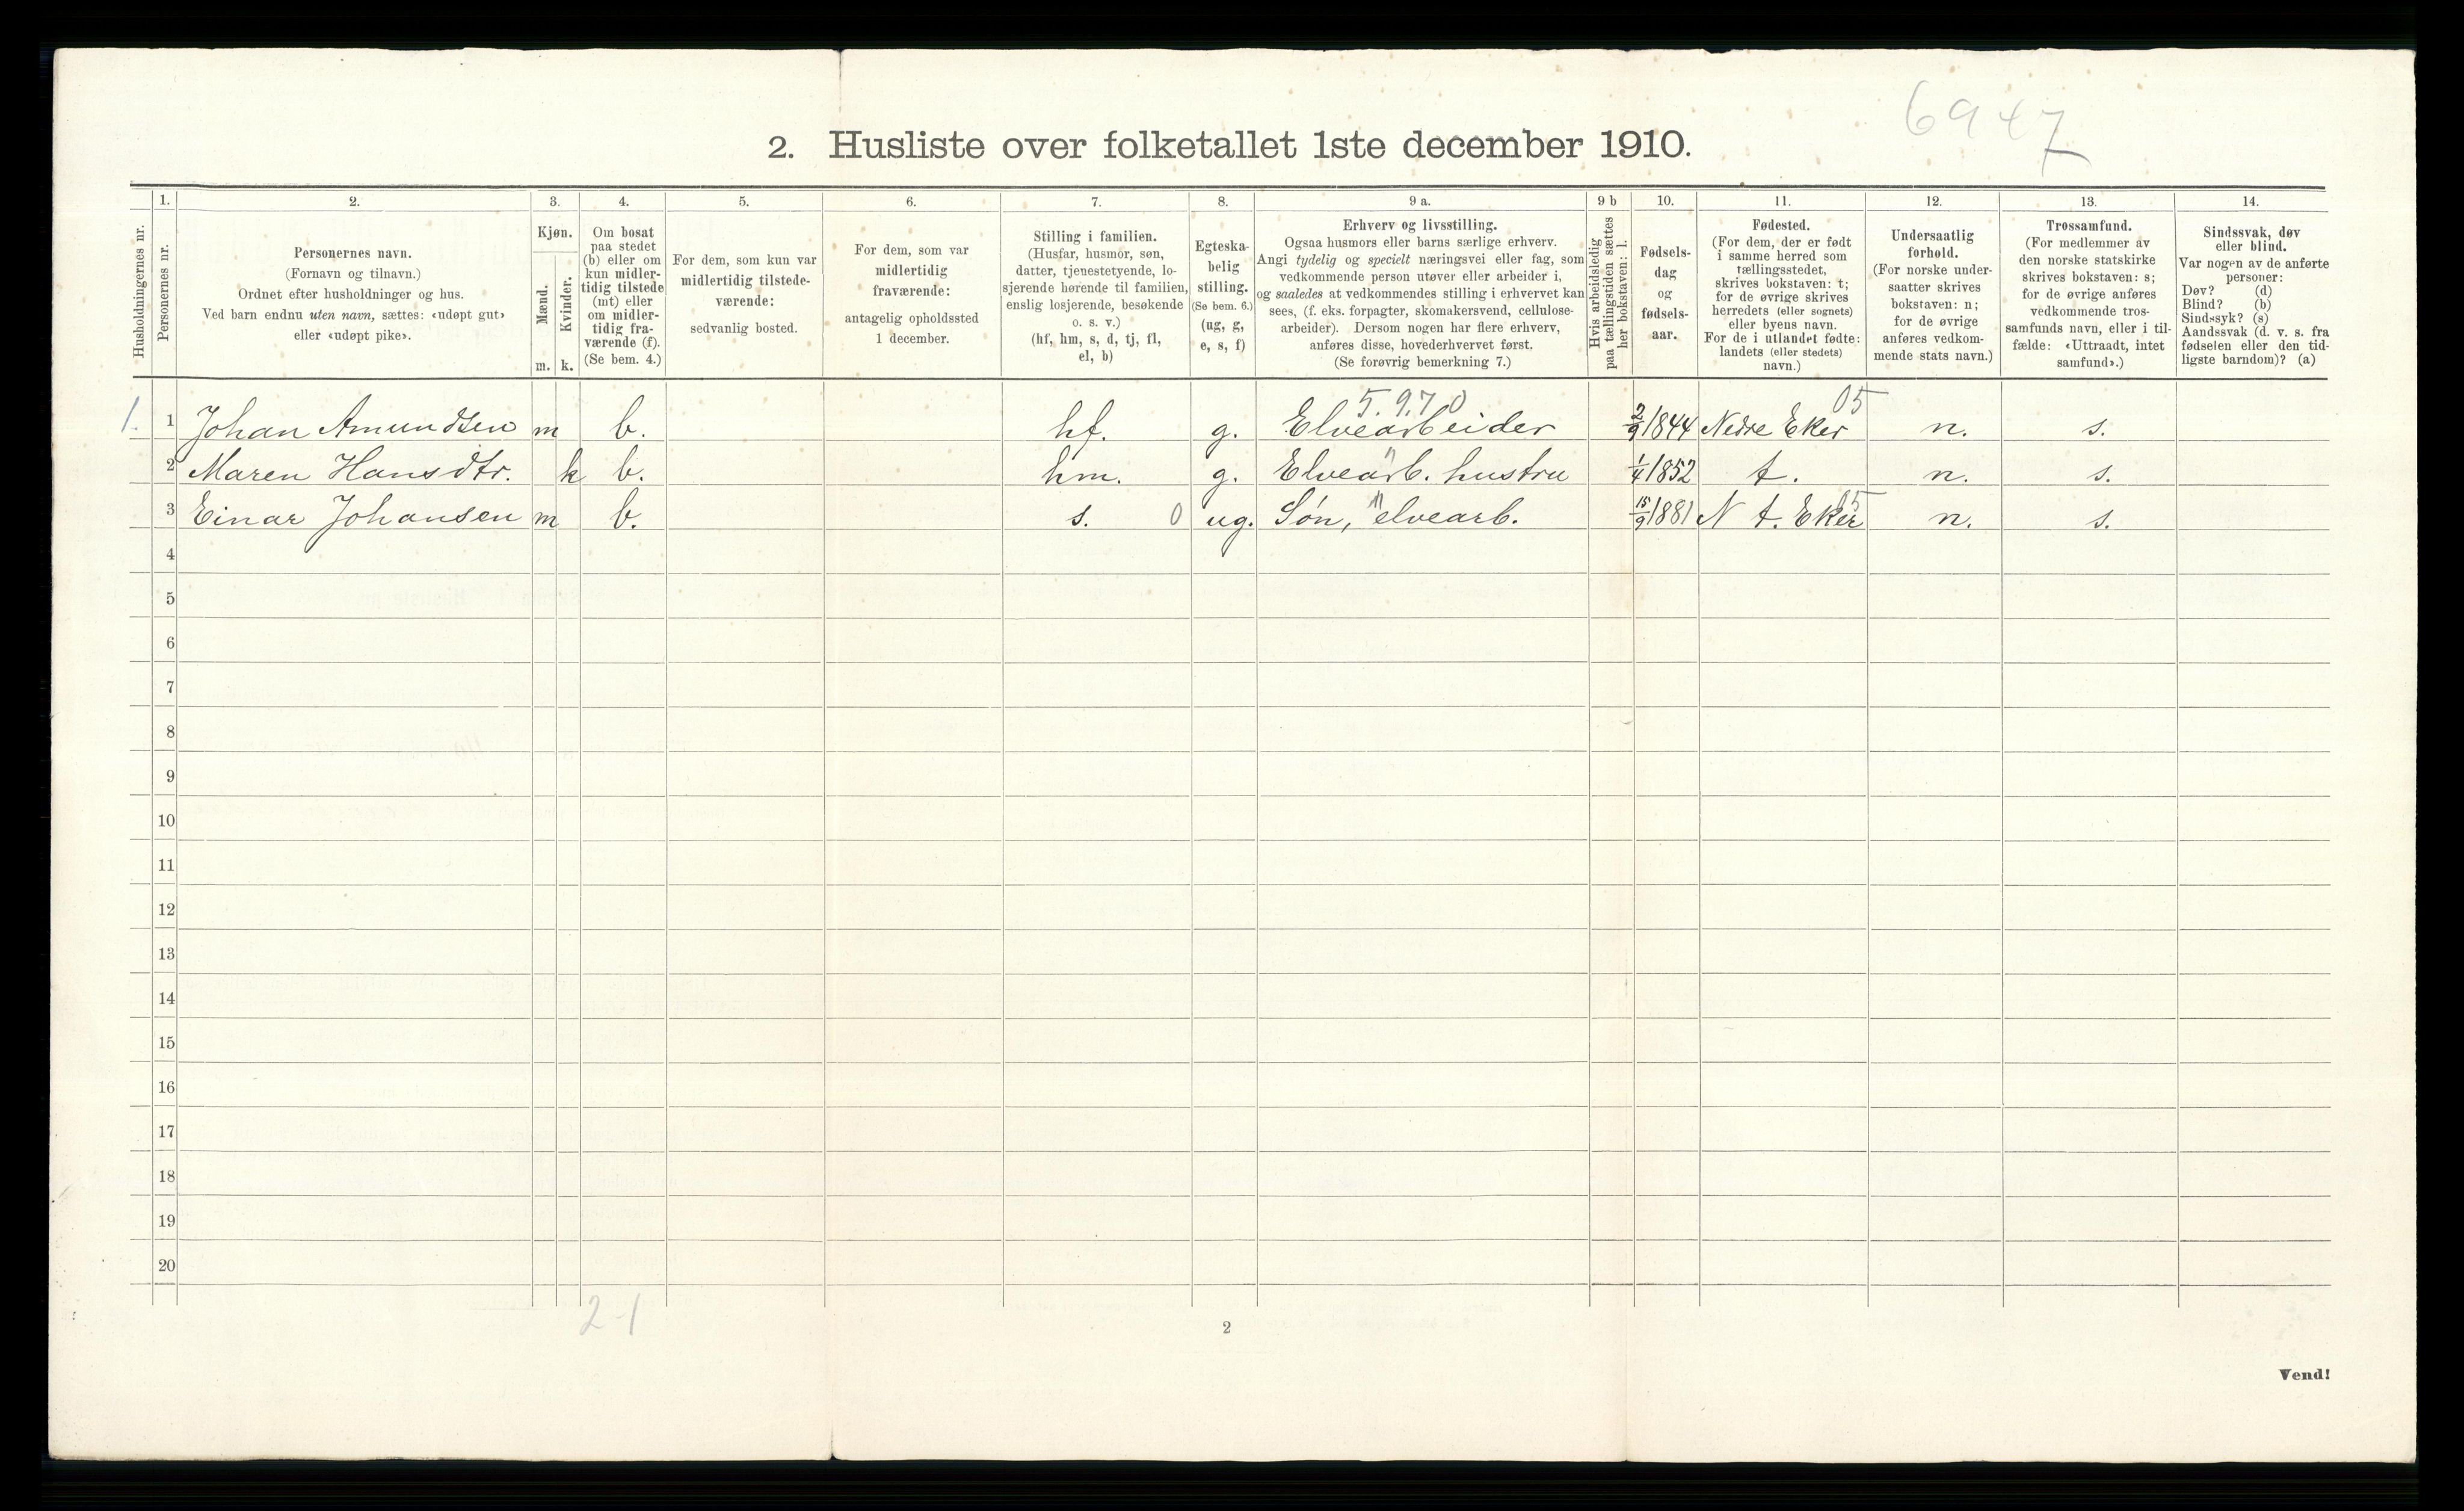 6947
2. Husliste over folketallet 1ste december 1910.
Husholdningernes nr.
1.
Personernes nr.
2.
Personernes navn.
(Fornavn og tilnavn.)
Ordnet efter husholdninger og hus.
Ved barn endnu uten navn, sættes: «udøpt gut»
eller «udøpt pike».
3.
Kjøn.
Mænd.
Kvinder.
m. k.
4.
Om bosat
paa stedet
(b) eller om
kun midler-
tidig tilstede
(mt) eller
om midler-
tidig fra-
værende (f).
(Se bem. 4.)
5.
For dem, som kun var
midlertidig tilstede-
værende:
sedvanlig bosted.
6.
For dem, som var
midlertidig
fraværende:
antagelig opholdssted
1 december.
7.
Stilling i familien.
(Husfar, husmor, søn,
datter, tjenestetyende, lo-
sjerende hørende til familien,
enslig losjerende, besøkende
o. s. v.)
(hf, hm, s, d, tj, fl,
el, b)
8.
Egteska-
belig
stilling.
(Se bem. 6.)
(ug, g,
e, s, f)
9 a.
Erhverv og livsstilling.
Ogsaa husmors eller barns særlige erhverv.
Angi tydelig og specielt næringsvei eller fag, som
vedkommende person utøver eller arbeider i,
og saaledes at vedkommendes stilling i erhvervet kan
sees, (f. eks. forpagter, skomakersvend, cellulose-
arbeider). Dersom nogen har flere erhverv,
anføres disse, hovederhvervet først.
(Se forøvrig bemerkning 7.)
9 b
Hvis arbeidsledig
paa tællingstiden sættes
her bokstaven: l.
10.
Fødsels-
dag
og
fødsels-
aar.
11.
Fødested.
(For dem, der er født
i samme herred som
tællingsstedet,
skrives bokstaven: t;
for de øvrige skrives
herredets (eller sognets)
eller byens navn.
For de i utlandet fødte:
landets (eller stedets)
navn.)
12.
Undersaatlig
forhold.
(For norske under-
saatter skrives
bokstaven: n;
for de øvrige
anføres vedkom-
mende stats navn.)
13.
Trossamfund.
(For medlemmer av
den norske statskirke
skrives bokstaven: s;
for de øvrige anføres
vedkommende tros-
samfunds navn, eller i til-
fælde: «Uttraadt, intet
samfund».)
14.
Sindssvak, døv
eller blind.
Var nogen av de anførte
personer:
Døv? (d)
Blind? (b)
Sindssyk? (s)
Aandssvak (d. v. s. fra
fødselen eller den tid-
ligste barndom)? (a)
5.9.70 05
1. 1 Johan Amundsen m b. hf. g. Elvearbeider 2/9 1844 Nedre Eker n. s.
2 Maren Hansdtr. k b. hm. g. Elvearb. hustru 1/4 1852 t. n. s.
3 Einar Johansen m b. s. 0 ug. Søn, " elvearb. 15/9 1881 N t. Eker 05 n. s.
4
5
6
7
8
9
10
11
12
13
14
15
16
17
18
19
20
2-1
2
Vend!